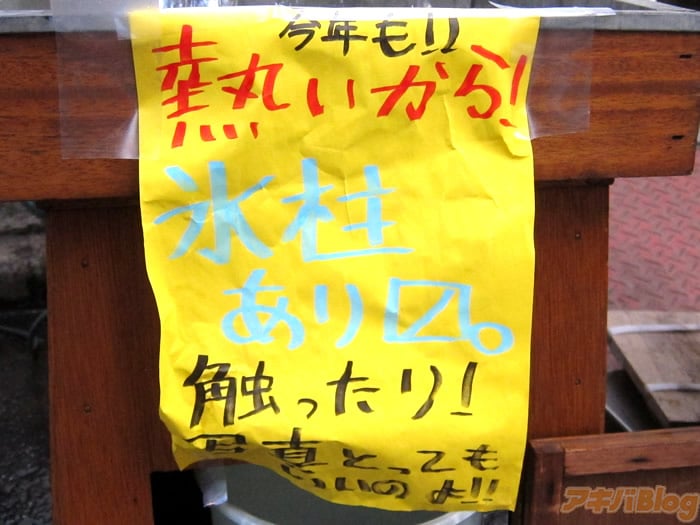 今年も!!
熱いから!
氷柱
あり〼。
触ったり!
写真とっても
いいのよ!!
アキバBlog